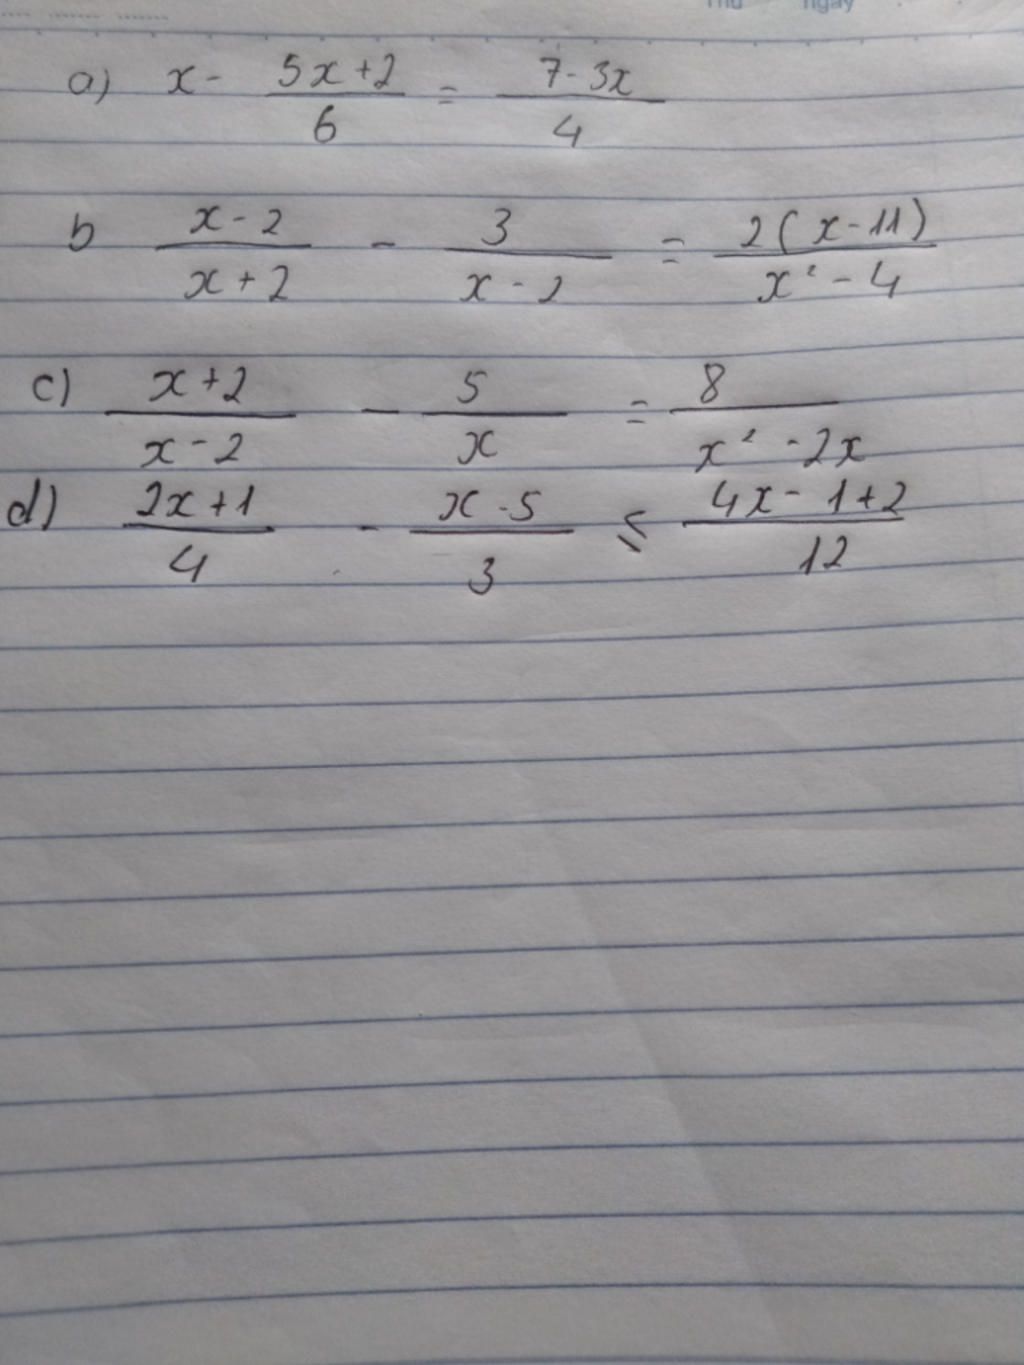 Thứ ngày
a) x - \frac{5x+2}{6} = \frac{7-3x}{4}
b \frac{x-2}{x+2} - \frac{3}{x-2} = \frac{2(x-11)}{x²-4}
c) \frac{x+2}{x-2} - \frac{5}{x} = \frac{8}{x²-2x}
d) \frac{2x+1}{4} - \frac{x-5}{3} ≤ \frac{4x-1+2}{12}